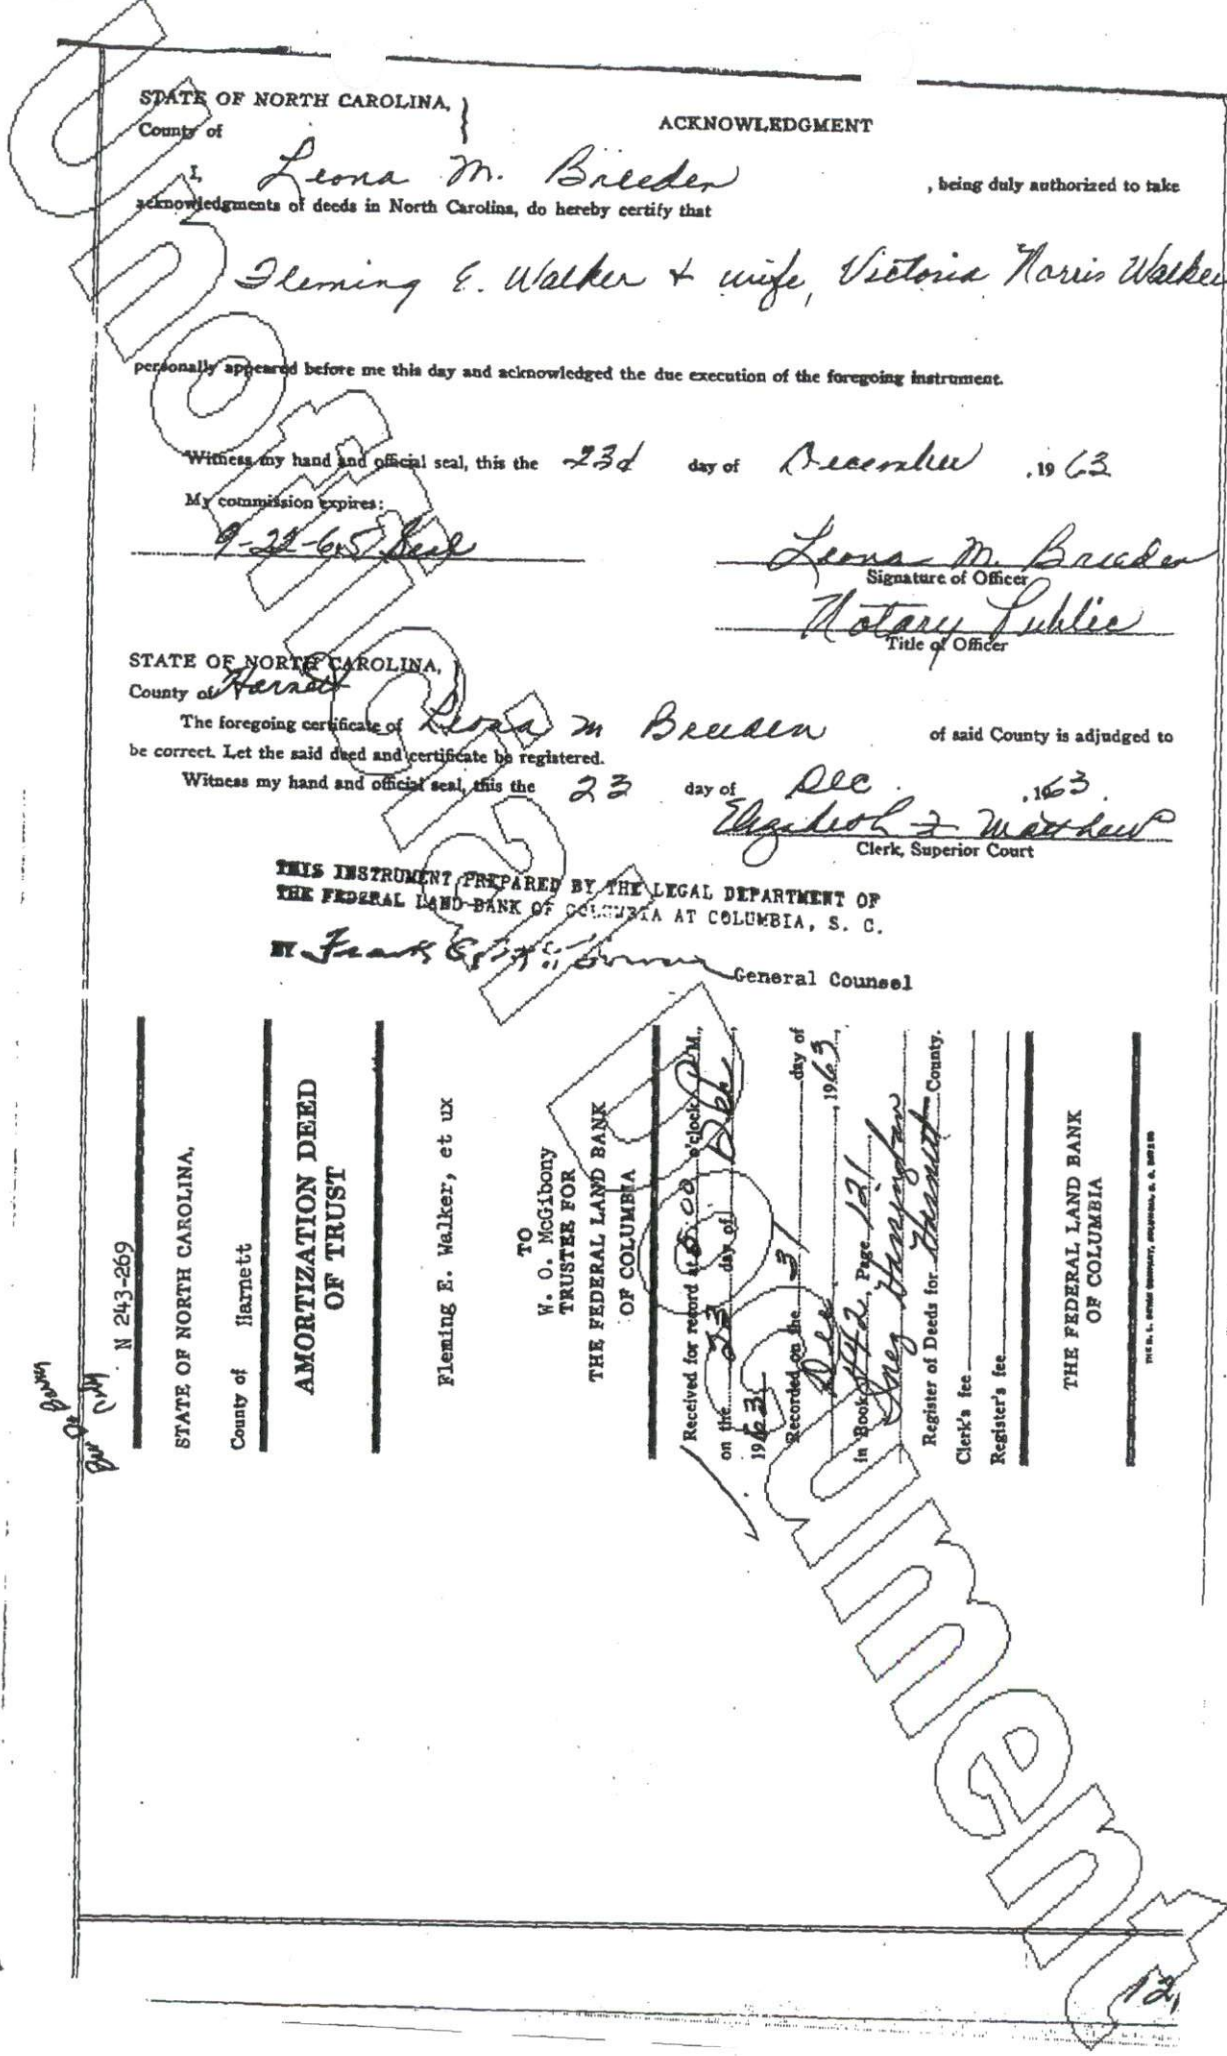 STATE OF NORTH CAROLINA, }
County of
ACKNOWLEDGMENT
I, Leona M. Breeden, being duly authorized to take
acknowledgments of deeds in North Carolina, do hereby certify that
Fleming E. Walker & wife, Victoria Norris Walker
personally appeared before me this day and acknowledged the due execution of the foregoing instrument.
Witness my hand and official seal, this the 23d day of December, 1963
My commission expires:
9-22-65 Seal
Leona M. Breeden
Signature of Officer
Notary Public
Title of Officer
STATE OF NORTH CAROLINA, }
County of Harnett
The foregoing certificate of Leona M Breeden of said County is adjudged to
be correct. Let the said deed and certificate be registered.
Witness my hand and official seal, this the 23 day of Dec., 1963.
Elizabeth F. Matthews
Clerk, Superior Court
THIS INSTRUMENT PREPARED BY THE LEGAL DEPARTMENT OF
THE FEDERAL LAND BANK OF COLUMBIA AT COLUMBIA, S. C.
BY Frank General Counsel
N 243-269
STATE OF NORTH CAROLINA,
County of Harnett
AMORTIZATION DEED
OF TRUST
Fleming E. Walker, et ux
TO
W. O. McGibony
TRUSTEE FOR
THE FEDERAL LAND BANK
OF COLUMBIA
Received for record at 5:00 o'clock P M.,
on the 23 day of Dec,
1963
Recorded on the 31 day of
Dec, 1963,
in Book 442, Page 121
Inez Harrington
Register of Deeds for Harnett County.
Clerk's fee
Register's fee
THE FEDERAL LAND BANK
OF COLUMBIA
Unofficial Document